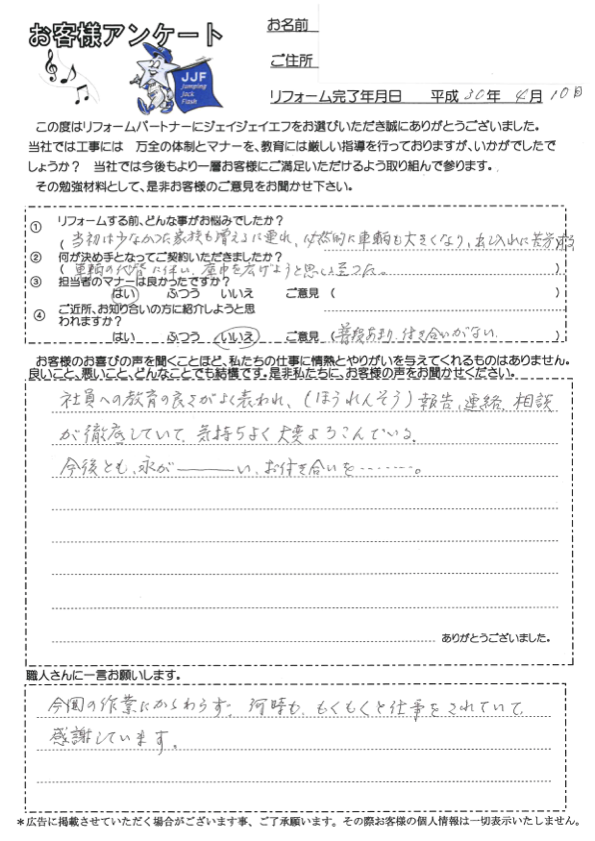 お客様アンケート
JJF
Jumping
Jack
Flash
お名前
ご住所
リフォーム完了年月日 平成 30年 4月 10日
この度はリフォームパートナーにジェイジェイエフをお選びいただき誠にありがとうございました。
当社では工事には 万全の体制とマナーを、教育には厳しい指導を行っておりますが、いかがでしたで
しょうか? 当社では今後もより一層お客様にご満足いただけるよう取り組んで参ります。
その勉強材料として、是非お客様のご意見をお聞かせ下さい。
① リフォームする前、どんな事がお悩みでしたか?
( 当初は少なかつた家族も増えるに連れ、必然的に車輌も大きくなり、出し入れに苦労する
② 何が決め手となってご契約いただきましたか?
( 車輌の代替に伴い、庭中を広げようと思い至つた。 )
③ 担当者のマナーは良かったですか?
はい ふつう いいえ ご意見 ( )
④ ご近所、お知り合いの方に紹介しようと思
われますか?
はい ふつう いいえ ご意見 (普段あまり、付き合いがない. )
お客様のお喜びの声を聞くことほど、私たちの仕事に情熱とやりがいを与えてくれるものはありません。
良いこと、悪いこと、どんなことでも結構です。是非私たちに、お客様の声をお聞かせください。
社員への教育の良さがよく表われ、(ほうれんそう)報告、連絡、相談
が徹底していて、気持ちよく大変よろこんでいる。
今後とも、永が―――い、お付き合いを‥‥‥‥。
ありがとうございました。
職人さんに一言お願いします。
今回の作業にかゝわらず、何時も、もくもくと仕事をされていて
感謝しています。
*広告に掲載させていただく場合がございます事、ご了承願います。その際お客様の個人情報は一切表示いたしません。